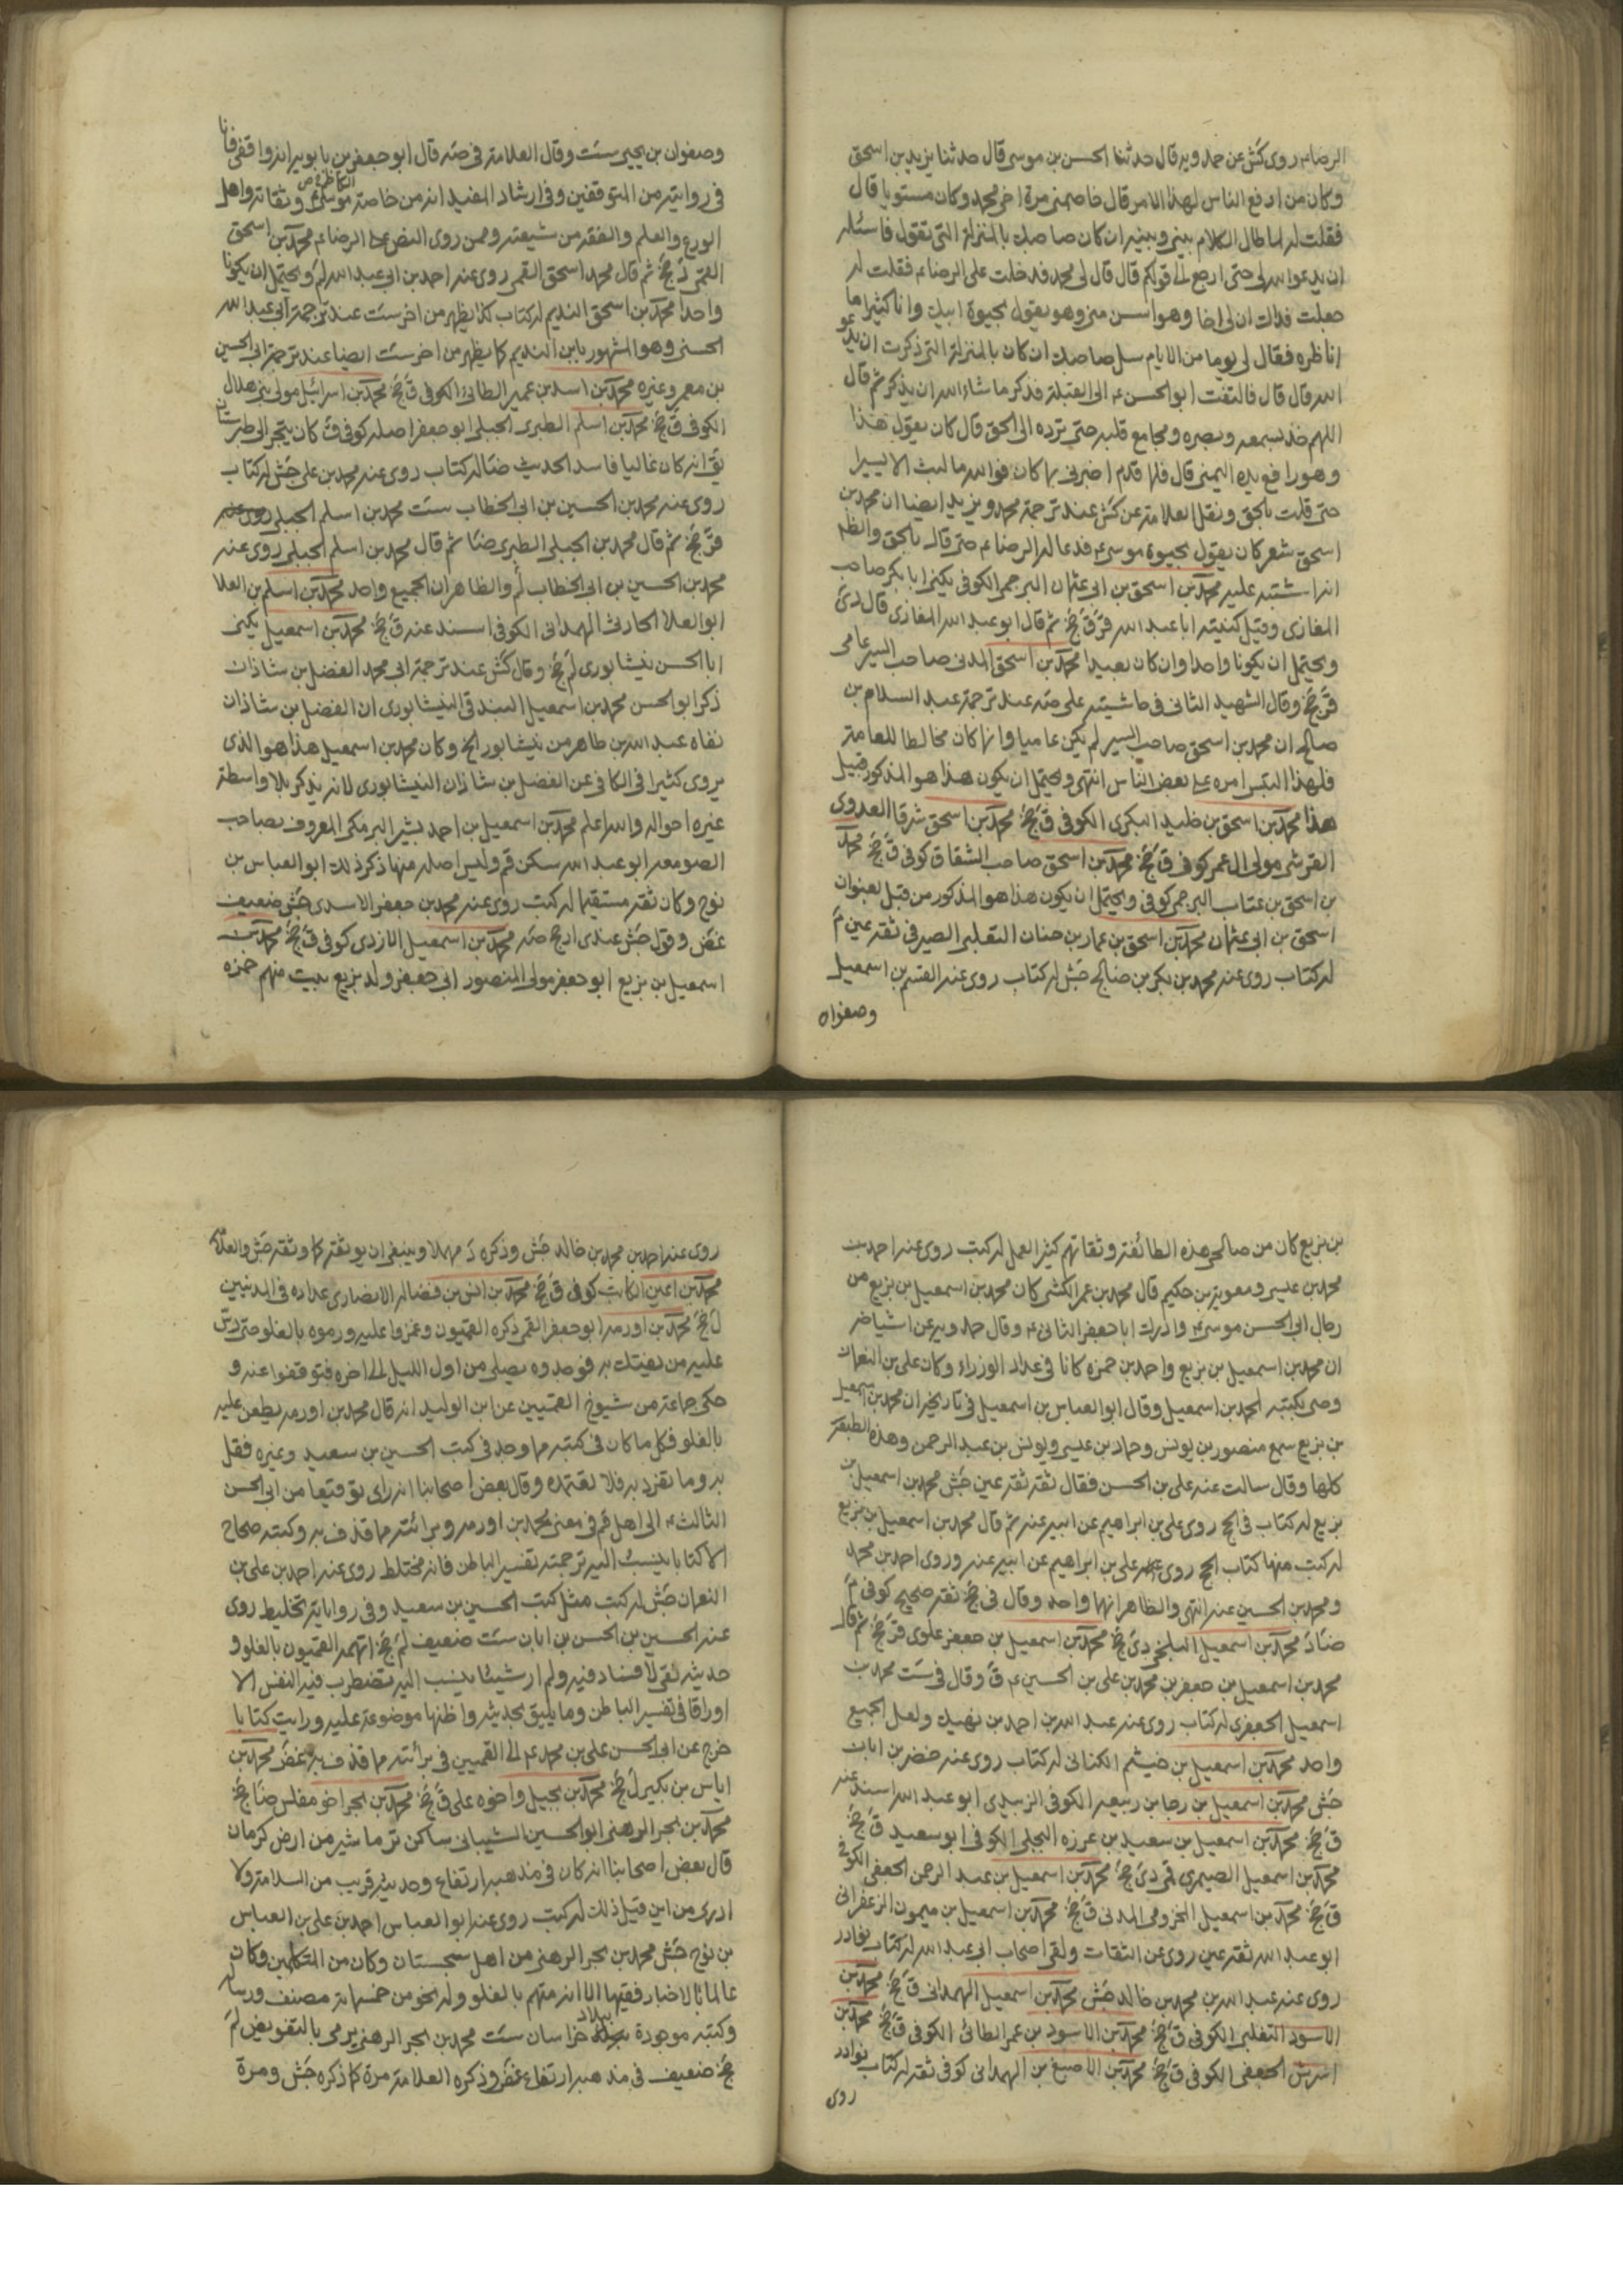 الرضاء روى كش عن حمدويه قال حدثنا الحسن بن موسى قال حدثنا يزيد بن اسحق
وكان من ادفع الناس لهذا الامر قال خاصمنى مرة اخى محمد وكان مستويا قال
فقلت له لما طال الكلام بينى وبينه ان كان صاحبك بالمنزلة التى تقول فاسئله
ان يدعو الله لى حتى ارجع الى قولكم قال قال لى محمد فدخلت على الرضاء فقلت له
جعلت فداك ان لى اخا وهو اسن منى وهو يقول بحيوة ابيك وانا كثيرا ما
اناظره فقال لى يوما من الايام سل صاحبك ان كان بالمنزلة التى ذكرت ان يدعو
الله قال قال فالتفت ابو الحسن ع الى القبلة فذكر ما شاء الله ان يذكر ثم قال
اللهم خذ بسمعه وبصره ومجامع قلبه حتى ترده الى الحق قال كان يقول هذا
وهو رافع يده اليمنى قال فلما قدم اخبرنى بما كان فوالله ما لبثت الا يسيرا
حتى قلت بالحق ونقل العلامة عن كش عند ترجمة محمد ويزيد ايضا ان محمد بن
اسحق شعر كان يقول بحيوة موسى ع فدعا له الرضاء حتى قال بالحق والظ
انه اشتبه عليه محمد بن اسحق بن ابى عثمان البرجمى الكوفى يكنى ابا بكر صاحب
المغازى وقيل كنيته ابا عبد الله قر ق جخ ثم قال ابو عبد الله المغازى قال دى
ويحتمل ان يكونا واحدا وان كان بعيدا محمد بن اسحق المدنى صاحب السير عامى
قر جخ وقال الشهيد الثانى فى حاشيته على صه عند ترجمة عبد السلام بن
صالح ان محمد بن اسحق صاحب السير لم يكن عاميا وانما كان مخالطا للعامة
فلهذا التبس امره على بعض الناس انتهى ويحتمل ان يكون هذا هو المذكور قبيل
هذا محمد بن اسحق بن خليد البكرى الكوفى ق جخ محمد بن اسحق شرقا العدوى
القرشى مولى ال عمر كوفى ق جخ محمد بن اسحق صاحب الشقاق كوفى ق جخ محمد
بن اسحق بن عتاب البرجمى كوفى ويحتمل ان يكون هذا هو المذكور من قبل بعنوان
اسحق بن ابى عثمان محمد بن اسحق بن عمار بن حنان التغلبى الصيرفى ثقة عين م
له كتاب روى عنه محمد بن بكر بن صالح جش له كتاب روى عنه القسم بن اسمعيل
وصفوان
وصفوان بن يحيى ست وقال العلامة فى صه قال ابو جعفر بن بابويه انه واقفى فانا
فى روايته من المتوقفين وفى ارشاد المفيد انه من خاصة موسى ع وثقاته واهل
الكاظم ع ص
الورع والعلم والفقه من شيعته وممن روى النص على الرضاء محمد بن اسحق
القمى د جخ ثم قال محمد اسحق القمى روى عنه احمد بن ابى عبد الله لم ويحتمل ان يكونا
واحدا محمد بن اسحق النديم له كتاب كذا يظهر من اخر ست عند ترجمة ابى عبد الله
الحسنى وهو المشهور بابن النديم كما يظهر من اخر ست ايضا عند ترجمة ابى الحسين
بن معمر وغيره محمد بن اسد بن عمير الطائى الكوفى ق جخ محمد بن اسرائيل مولى بنى هلال
الكوفى ق جخ محمد بن اسلم الطبرى الجبلى ابو جعفر اصله كوفى ق كان يتجر الى طبرستان
يق انه كان غاليا فاسد الحديث ضا له كتاب روى عنه محمد بن على جش له كتاب
روى عنه محمد بن الحسين بن ابى الخطاب ست محمد بن اسلم الجبلى روى عنه
قر جخ ثم قال محمد بن الجبلى الطبرى ضا ثم قال محمد بن اسلم الجبلى روى عنه
محمد بن الحسين بن ابى الخطاب لم والظاهر ان الجميع واحد محمد بن اسلم بن العلا
ابو العلا الحارثى الهمدانى الكوفى اسند عنه ق جخ محمد بن اسمعيل يكنى
ابا الحسن نيشابورى لم جخ وقال كش عند ترجمة ابى محمد الفضل بن شاذان
ذكر ابو الحسن محمد بن اسمعيل البندقى النيشابورى ان الفضل بن شاذان
نفاه عبد الله بن طاهر من نيشابور الخ وكان محمد بن اسمعيل هذا هو الذى
يروى كثيرا فى الكافى عن الفضل بن شاذان النيشابورى لانه يذكر بلا واسطة
غيره احواله والله اعلم محمد بن اسمعيل بن احمد بشير البرمكى المعروف بصاحب
الصومعة ابو عبد الله سكن قم وليس اصله منها ذكر ذلك ابو العباس بن
نوح وكان ثقة مستقيما له كتب روى عنه محمد بن جعفر الاسدى جش ضعيف
غض وقول جش عندى ارجح صه محمد بن اسمعيل الازدى كوفى ق جخ محمد بن
اسمعيل بن بزيع ابو جعفر مولى المنصور ابى جعفر وولد بزيع بيت منهم حمزه
بن بزيع كان من صالحى هذه الطائفة وثقاتهم كثير العمل له كتب روى عنه احمد بن
محمد بن عيسى ومعوية بن حكيم قال محمد بن عمر الكشى كان محمد بن اسمعيل بن بزيع من
رجال ابى الحسن موسى ع وادرك ابا جعفر الثانى ع وقال حمدويه عن اشياخه
ان محمد بن اسمعيل بن بزيع واحمد بن حمزه كانا فى عداد الوزراء وكان على بن النعمان
وصى بكتبه لمحمد بن اسمعيل وقال ابو العباس بن اسمعيل فى تاريخه ان محمد بن اسمعيل
بن بزيع سمع منصور بن يونس وحماد بن عيسى ويونس بن عبد الرحمن وهذه الطبقة
كلها وقال سالت عنه على بن الحسن فقال ثقة ثقة عين جش محمد بن اسمعيل بن
بزيع له كتاب فى الحج روى على بن ابراهيم عن ابيه عنه ثم قال محمد بن اسمعيل بن بزيع
له كتب منها كتاب الحج روى على بن ابراهيم عن ابيه عنه وروى احمد بن محمد
ومحمد بن الحسين عنه انتهى والظاهر انهما واحد وقال فى جخ ثقة صحيح كوفى م
ضا د محمد بن اسمعيل البلخى دى جخ محمد بن اسمعيل بن جعفر علوى قر جخ ثم قال
محمد بن اسمعيل بن جعفر بن محمد بن على بن الحسين ع ق وقال فى ست محمد بن
اسمعيل الجعفرى له كتاب روى عنه عبد الله بن احمد بن نهيك ولعل الجميع
واحد محمد بن اسمعيل بن خيثم الكنانى له كتاب روى عنه خضر بن ابان
جش محمد بن اسمعيل بن رجا بن ربيعه الكوفى الزبيدى ابو عبد الله اسند عنه
ق جخ محمد بن اسمعيل بن سعيد بن عرزه البجلى الكوفى ابو سعيد ق جخ
محمد بن اسمعيل الصيمرى قمى دى جخ محمد بن اسمعيل بن عبد الرحمن الجعفى الكوفى
ق جخ محمد بن اسمعيل المخزومى المدنى ق جخ محمد بن اسمعيل بن ميمون الزعفرانى
ابو عبد الله ثقة عين روى عن الثقات ولقى اصحاب ابى عبد الله له كتاب نوادر
روى عنه عبد الله بن محمد بن خالد جش محمد بن اسمعيل الهمدانى ق جخ محمد بن
الاسود التغلبى الكوفى ق جخ محمد بن الاسود بن عمر الطائى الكوفى ق جخ محمد بن
اشرس الجعفى الكوفى ق جخ محمد بن الاصبغ بن الهمدانى كوفى ثقة له كتاب نوادر
روى
روى عنه احمد بن محمد بن خالد جش وذكره د مهملا وينبغى ان يوثقه كما وثقه جش والعلامة
محمد بن اعين الكاتب كوفى ق جخ محمد بن انس بن فضاله الانصارى عداده فى المدنيين
ل جخ محمد بن اورمه ابو جعفر القمى ذكره القميون وغمزوا عليه ورموه بالغلو حتى دس
عليه من يفتك به فوجدوه يصلى من اول الليل الى اخره فتوقفوا عنه و
حكى جماعة من شيوخ القميين عن ابن الوليد انه قال محمد بن اورمه يطعن عليه
بالغلو فكل ما كان فى كتبه مما وجد فى كتب الحسين بن سعيد وغيره فقل
به وما تفرد به فلا تعتمده وقال بعض اصحابنا انه راى توقيعا من ابى الحسن
الثالث ع الى اهل قم فى معنى محمد بن اورمه وبرائته مما قذف به وكتبه صحاح
الا كتابا ينسب اليه ترجمته تفسير الباطن فانه مختلط روى عنه احمد بن على بن
النعمان جش له كتب مثل كتب الحسين بن سعيد وفى رواياته تخليط روى
عنه الحسين بن الحسن بن ابان ست ضعيف لم جخ اتهمه القميون بالغلو و
حديثه نقى لا فساد فيه ولم ار شيئا ينسب اليه تضطرب فيه النفس الا
اوراقا فى تفسير الباطن وما يليق بحديثه واظنها موضوعة عليه ورايت كتابا
خرج عن ابى الحسن على بن محمد ع الى القميين فى برائته مما قذف به غض محمد بن
اياس بن بكير ل جخ محمد بن بجيل واخوه على ق جخ محمد بن بحر اخو مفلس ضا جخ
محمد بن بحر الرهنى ابو الحسين الشيبانى ساكن ترماشير من ارض كرمان
قال بعض اصحابنا انه كان فى مذهبه ارتفاع وحديثه قريب من السلامة ولا
ادرى من اين قيل ذلك له كتب روى عنه ابو العباس احمد بن على بن العباس
بن نوح جش محمد بن بحر الرهنى من اهل سجستان وكان من المتكلمين وكان
عالما بالاخبار فقيها الا انه متهم بالغلو وله نحو من خمسمائة مصنف ورسالة
وكتبه موجودة ببلاد خراسان ست محمد بن بحر الرهنى يرمى بالتفويض لم
جخ ضعيف فى مذهبه ارتفاع غض وذكره العلامة مرة كما ذكره جش ومرة